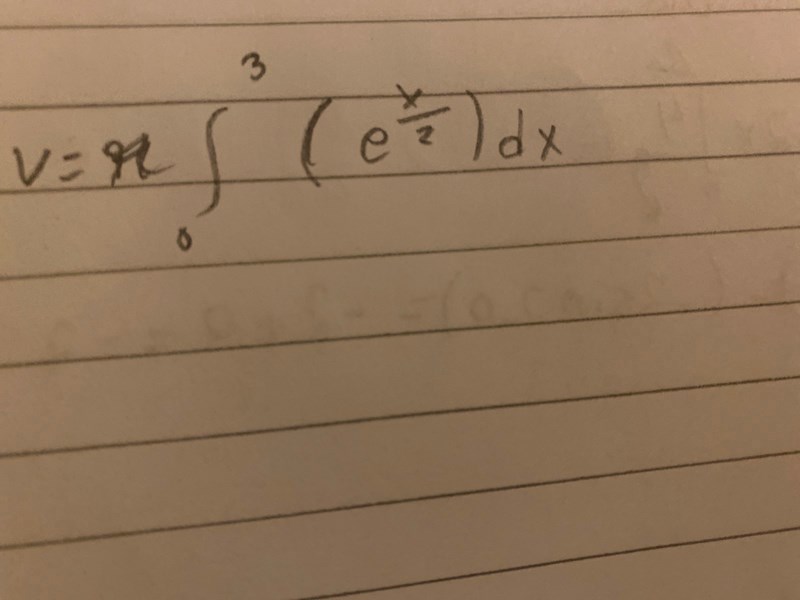 V = π ∫₀³ (e^(x/2)) dx